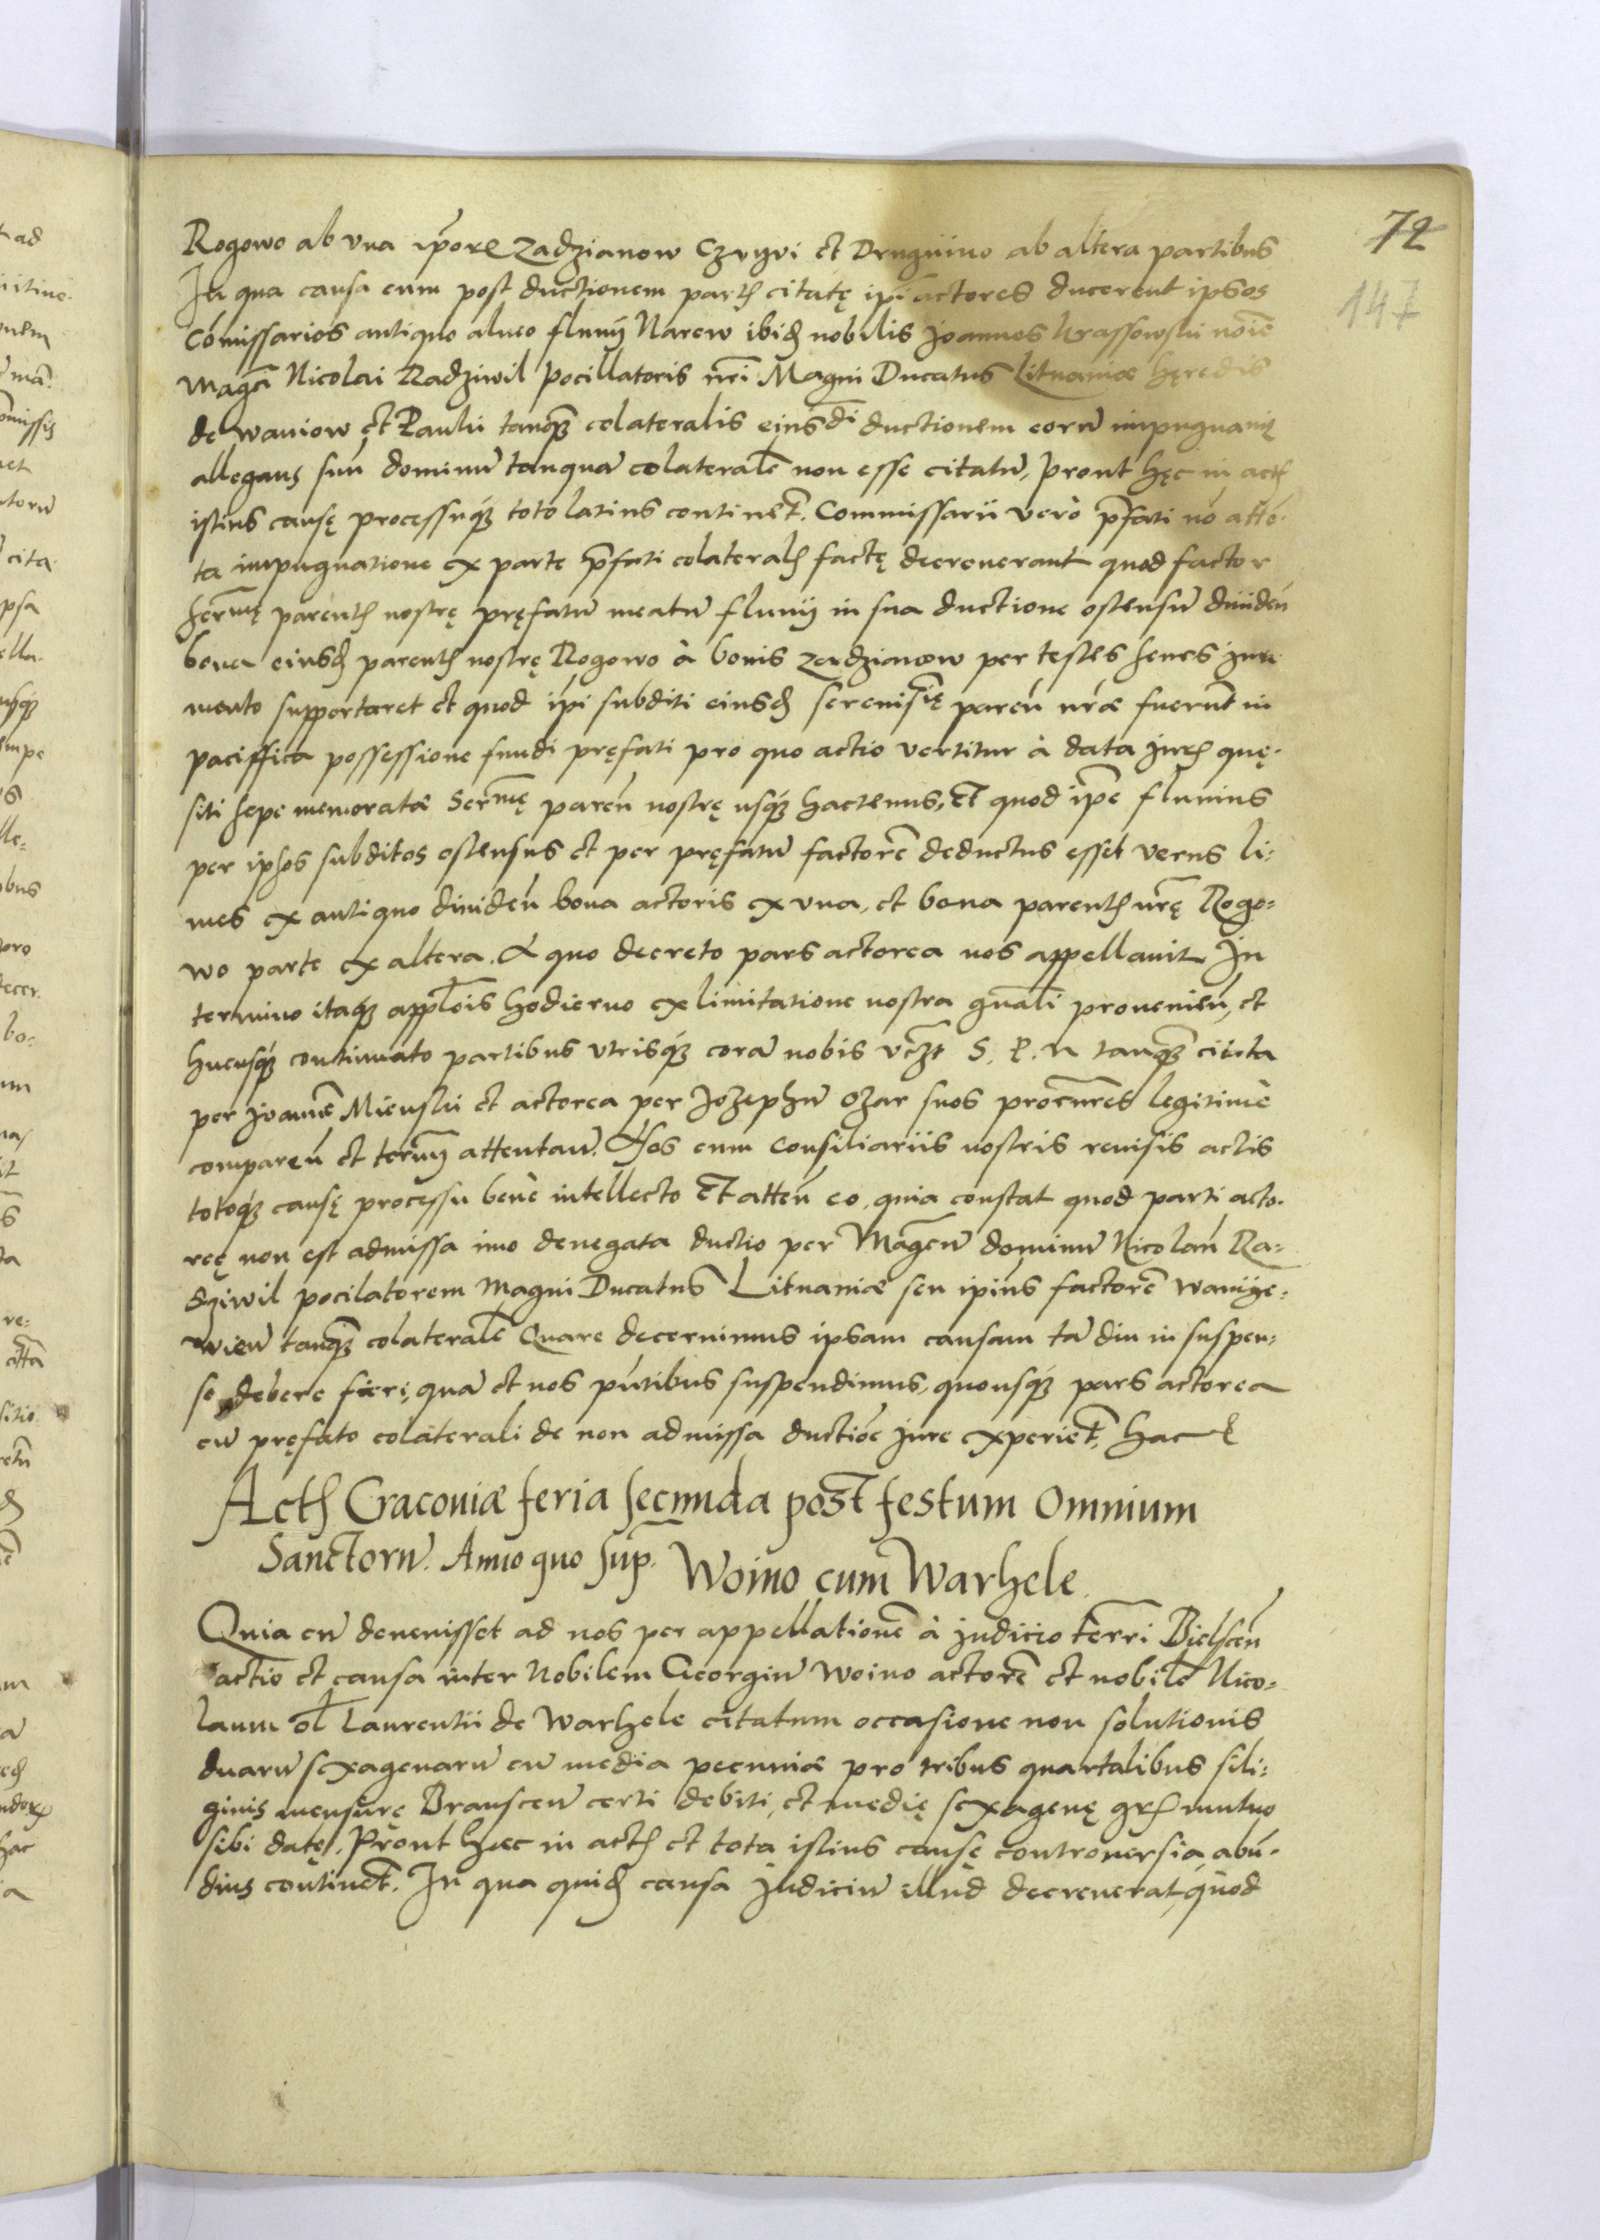 72
147
Rogowo ab vna ip̄or& Zadzianow Czrgvi et Drugiiino ab altera partibus
In qua causa cum post ductionem partis citatę ip̄i actores ducerent ipsos
Cōmissarios antiquo alueo fluuij Narew ibid nobilis Joannes Krassowski noīe
Magci Nicolai Radziwil pocillatoris nr̄i Magni Ducatus Lituaniæ hęredis
de waniow et Raulii tanq̄ colateralis eiusdī ductionem eorū impugnauit
allegans suū dominū tanquā colateralē non esse citatū, Prout hęc in actis
istius causę processuq́ʒ toto latius continēt. Commissarii verò p̄fati nō attē-
ta impugnatione ex parte p̄fati colateralis factę decreuerant quod factor
Serm̄ę parentis nostrę pręfatū meatū fluuij in sua ductione ostensū diuideń
bona eiusd parentis nostrę Rogowo à bonis Zadzianow per testes senes jura
mento supportaret et quod ip̄i subditi eiusd sereniss̄ię pareń nr̄æ fuerūt in
paciffica possessione fundi pręfati pro quo actio vertitur à data juris quę-
siti sepe memoratæ Serm̄ę pareń nostrę usq́ʒ hactenus, Et quod ip̄e fluuius
per ipsos subditos ostensus et per pręfatū factorē deductus esset verus li-
mes ex antiquo diuideń bona actoris ex vna, et bona parentis nr̄ę Rogo-
wo parte ex altera. A quo decreto pars actorea nos appellauit In
termino itaq́ʒ appl̄ois hodierno ex limitatione nostra gn̄ali prouenień, et
hucusq́ʒ continuato partibus vtrisq́ʒ corā nobis vcz̄t S. P. N tanq̄ citata
per Joannē Mienski et actorea per Jozephū Ozar suos procūres legitimè
compareń et termū attentań. Nos cum Consiliariis nostris reuisis actis
totoq́ʒ causę processu benè intellecto Et atteń eo, quia constat quod parti acto-
reę non est admissa imo denegata ductio per Magcū dominū Nicolaū Ra-
dziwil pocilatorem Magni Ducatus Lituaniæ seu ipīus factorē waniie-
wień tanq̄ colateralē Quare decernimus ipsam causam tā diu in suspen-
so debere fieri, quā et nos pn̄tibus suspendimus, quousq́ʒ pars actorea
cū pręfato colaterali de non admissa ductiōe jure experiet̄, hac &
Actis Cracouiæ feria secunda post festum Omnium
Sanctorū. Anno quo sup̄.
Woino cum Warhele
Quia cū deuenisset ad nos per appellationē à judicio terr̄i Bielsceń
actio et causa inter Nobilem Georgiū Woino actorē et nobilē Nico-
laum ol̄ Laurentii de Warhele citatum occasione non solutionis
duarū sexagenarū cū media pecuniæ pro tribus quartalibus sili-
ginis mensurę Bransceń certi debiti, et medię sexagenę gr̄s mutuo
sibi datę, Prout hæc in actis et tota istius causę controuersia abū-
dius continēt. In qua quid causa judiciū illud decreuerat, quod